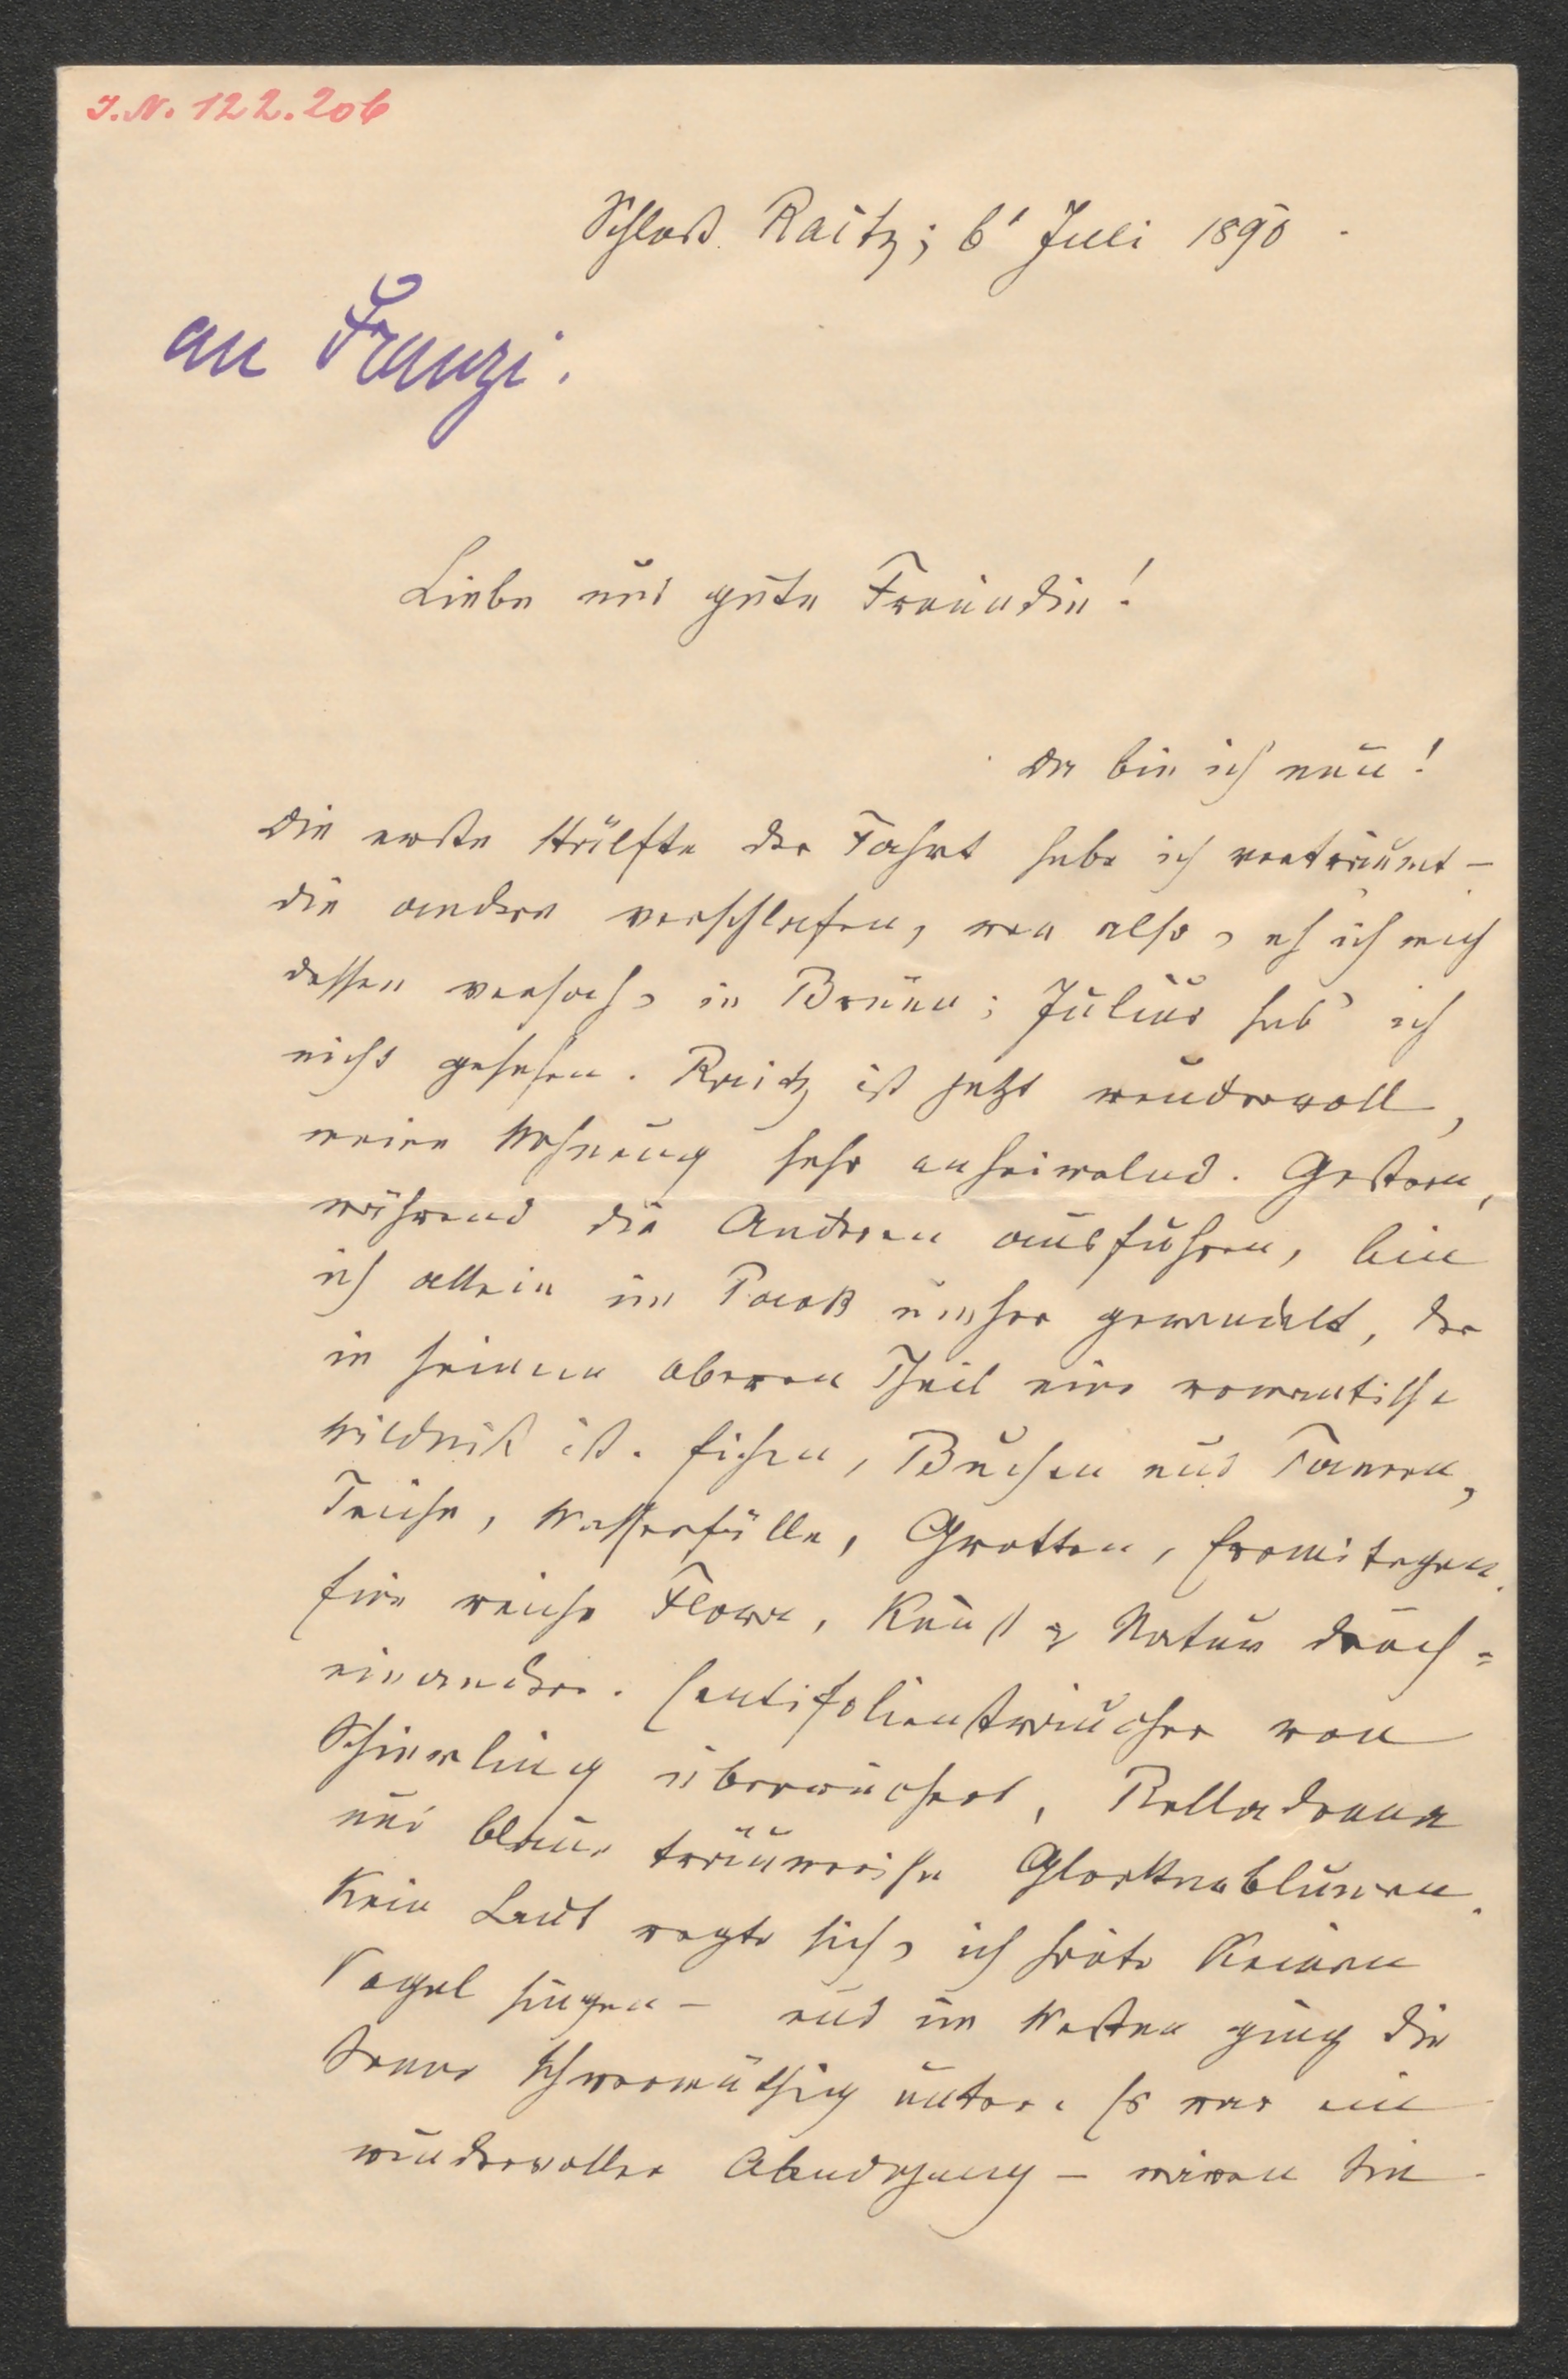 I.N. 122.206
Schloß Raitz; 6' Juli 1890
an Franzi.
Liebe und gute Freundin!
Da bin ich nun!
Die erste Hälfte der Fahrt habe ich verträumt –
die andere verschlafen, war also, eh ich mich
dessen versah, in Brünn; Julius hab' ich
nicht gesehen. Raitz ist jetzt wundervoll,
meine Wohnung sehr anheimelnd. Gestern,
während die Anderen ausfuhren, bin
ich allein im Park umher gewandelt, der
in seinem oberen Theil eine romantische
Wildniß ist. Eichen, Buchen und Tannen,
Teiche, Wasserfälle, Grotten, Eremitagen.
Eine reiche Flora, Kunst & Natur durch=
einander. Centifoliensträucher von
Schierling überwuchert, Belladonna
und blaue träumerische Glockenblumen.
Kein Laut regte sich, ich hörte keinen
Vogel singen – und im Westen ging die
Sonne schwermüthig unter. Es war ein
wundervoller Abendgang – wären Sie